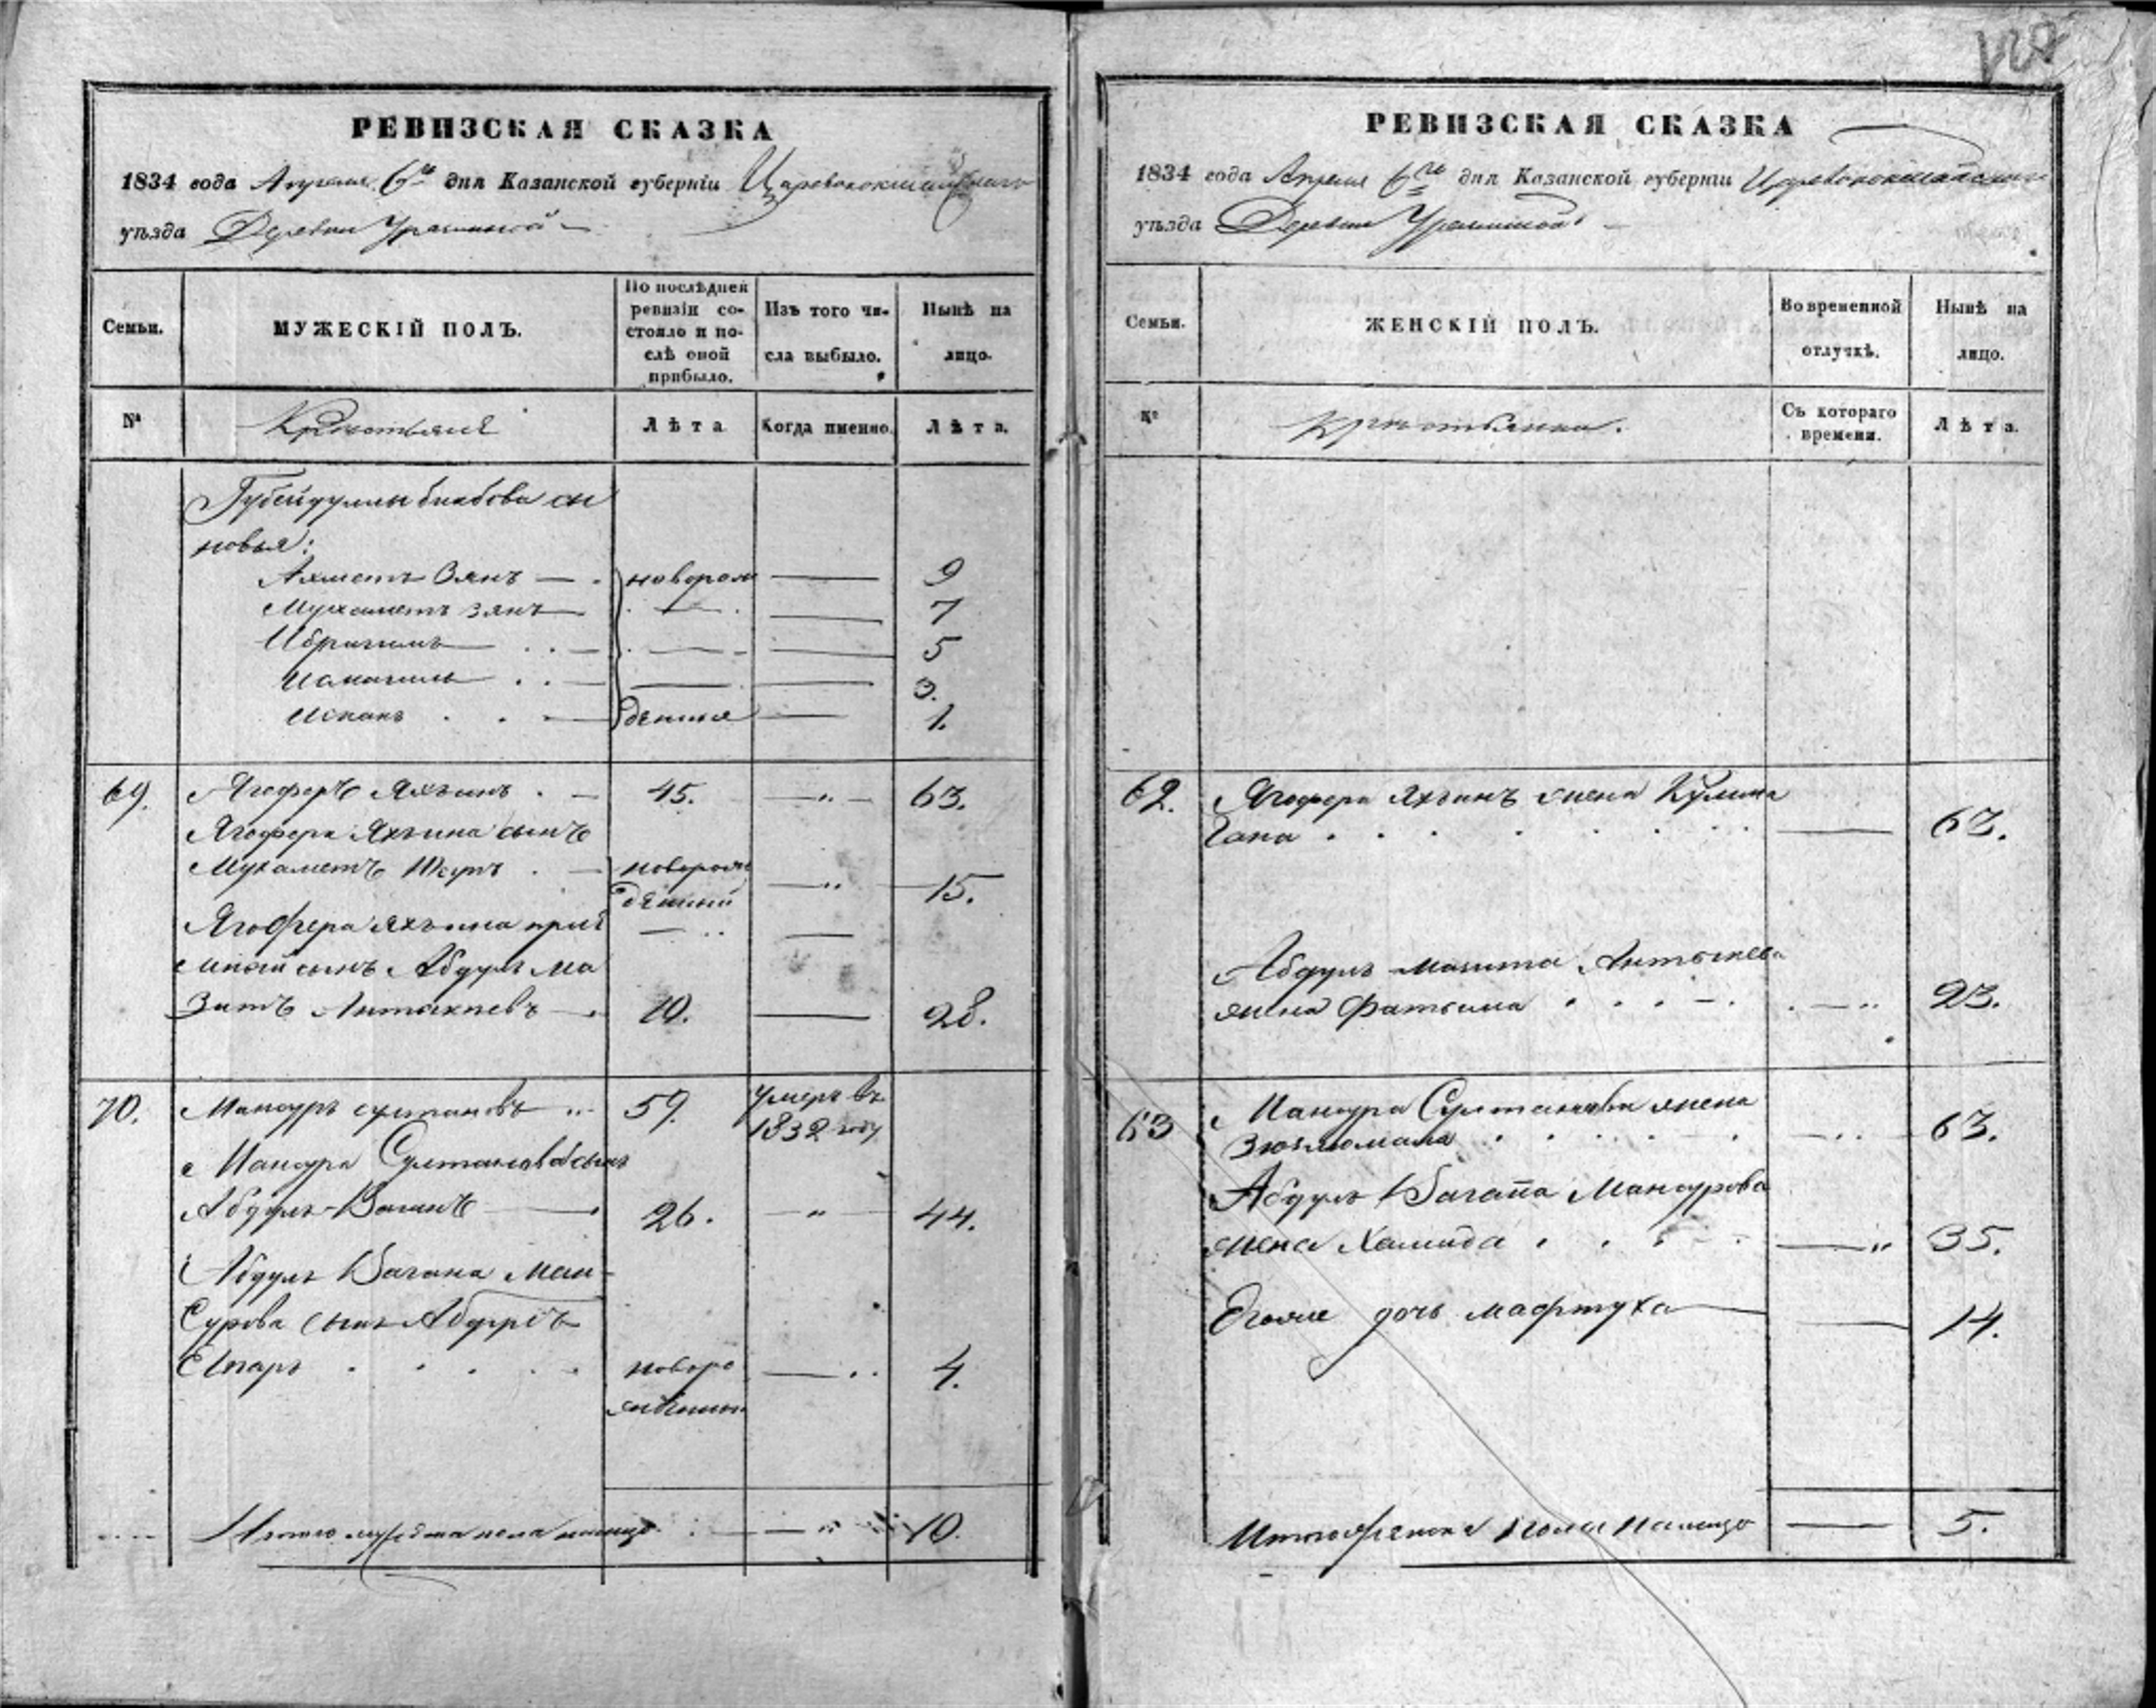 РЕВИЗСКАЯ СКАЗКА
1834 года Апреля 6го дня Казанской губерніи Царевококшайскаго
уѣзда Деревни Урясинской
Семьи.
МУЖЕСКІЙ ПОЛЪ.
По послѣдней
ревизіи со-
стояло и по-
слѣ оной
прибыло.
Изъ того чи-
сла выбыло.
Нынѣ на
лицо.
№
Крестьяне
Лѣта
Когда именно.
Лѣта.
Губейдуллы бикбова сы
новья:
Ахметъ Зянъ новорож 9
Мухаметъ зянъ 7
Ибрагимъ 5
Исмагилъ 3.
Исхакъ денныя 1.
69. Ягоферъ Яхъинъ 45. 63.
Ягофера Яхъина сынъ
Мухаметъ Шарипъ новорож
денный 15.
Ягофера Яхъина прие
мной сынъ Абдулъ Ма
зитъ 10. 28.
70. Мансуръ султановъ 59. умеръ въ
1832 году
Мансура Султанова сынъ
Абдулъ-Вагапъ 26. 44.
Абдулъ Вагапа Ман-
Сурова сынъ
новоро 4.
жденный
Итого мужеска пола налицо 10.
РЕВИЗСКАЯ СКАЗКА
1834 года Апреля 6го дня Казанской губерніи Царевококшайскаго
уѣзда Деревни Урясинской
Семьи.
ЖЕНСКІЙ ПОЛЪ.
Во временной
отлучкѣ.
Нынѣ на
лицо.
№
Крестьянки.
Съ котораго
времени.
Лѣта.
62. Ягофера Яхъинъ жена
63.
Абдулъ мазита
жена Фатыма 23.
63 Мансура Султанова жена
63.
Абдулъ Вагапа Мансурова
жена Хамида 35.
Ево же дочь мафтуха 14.
Итого женска пола налицо 5.